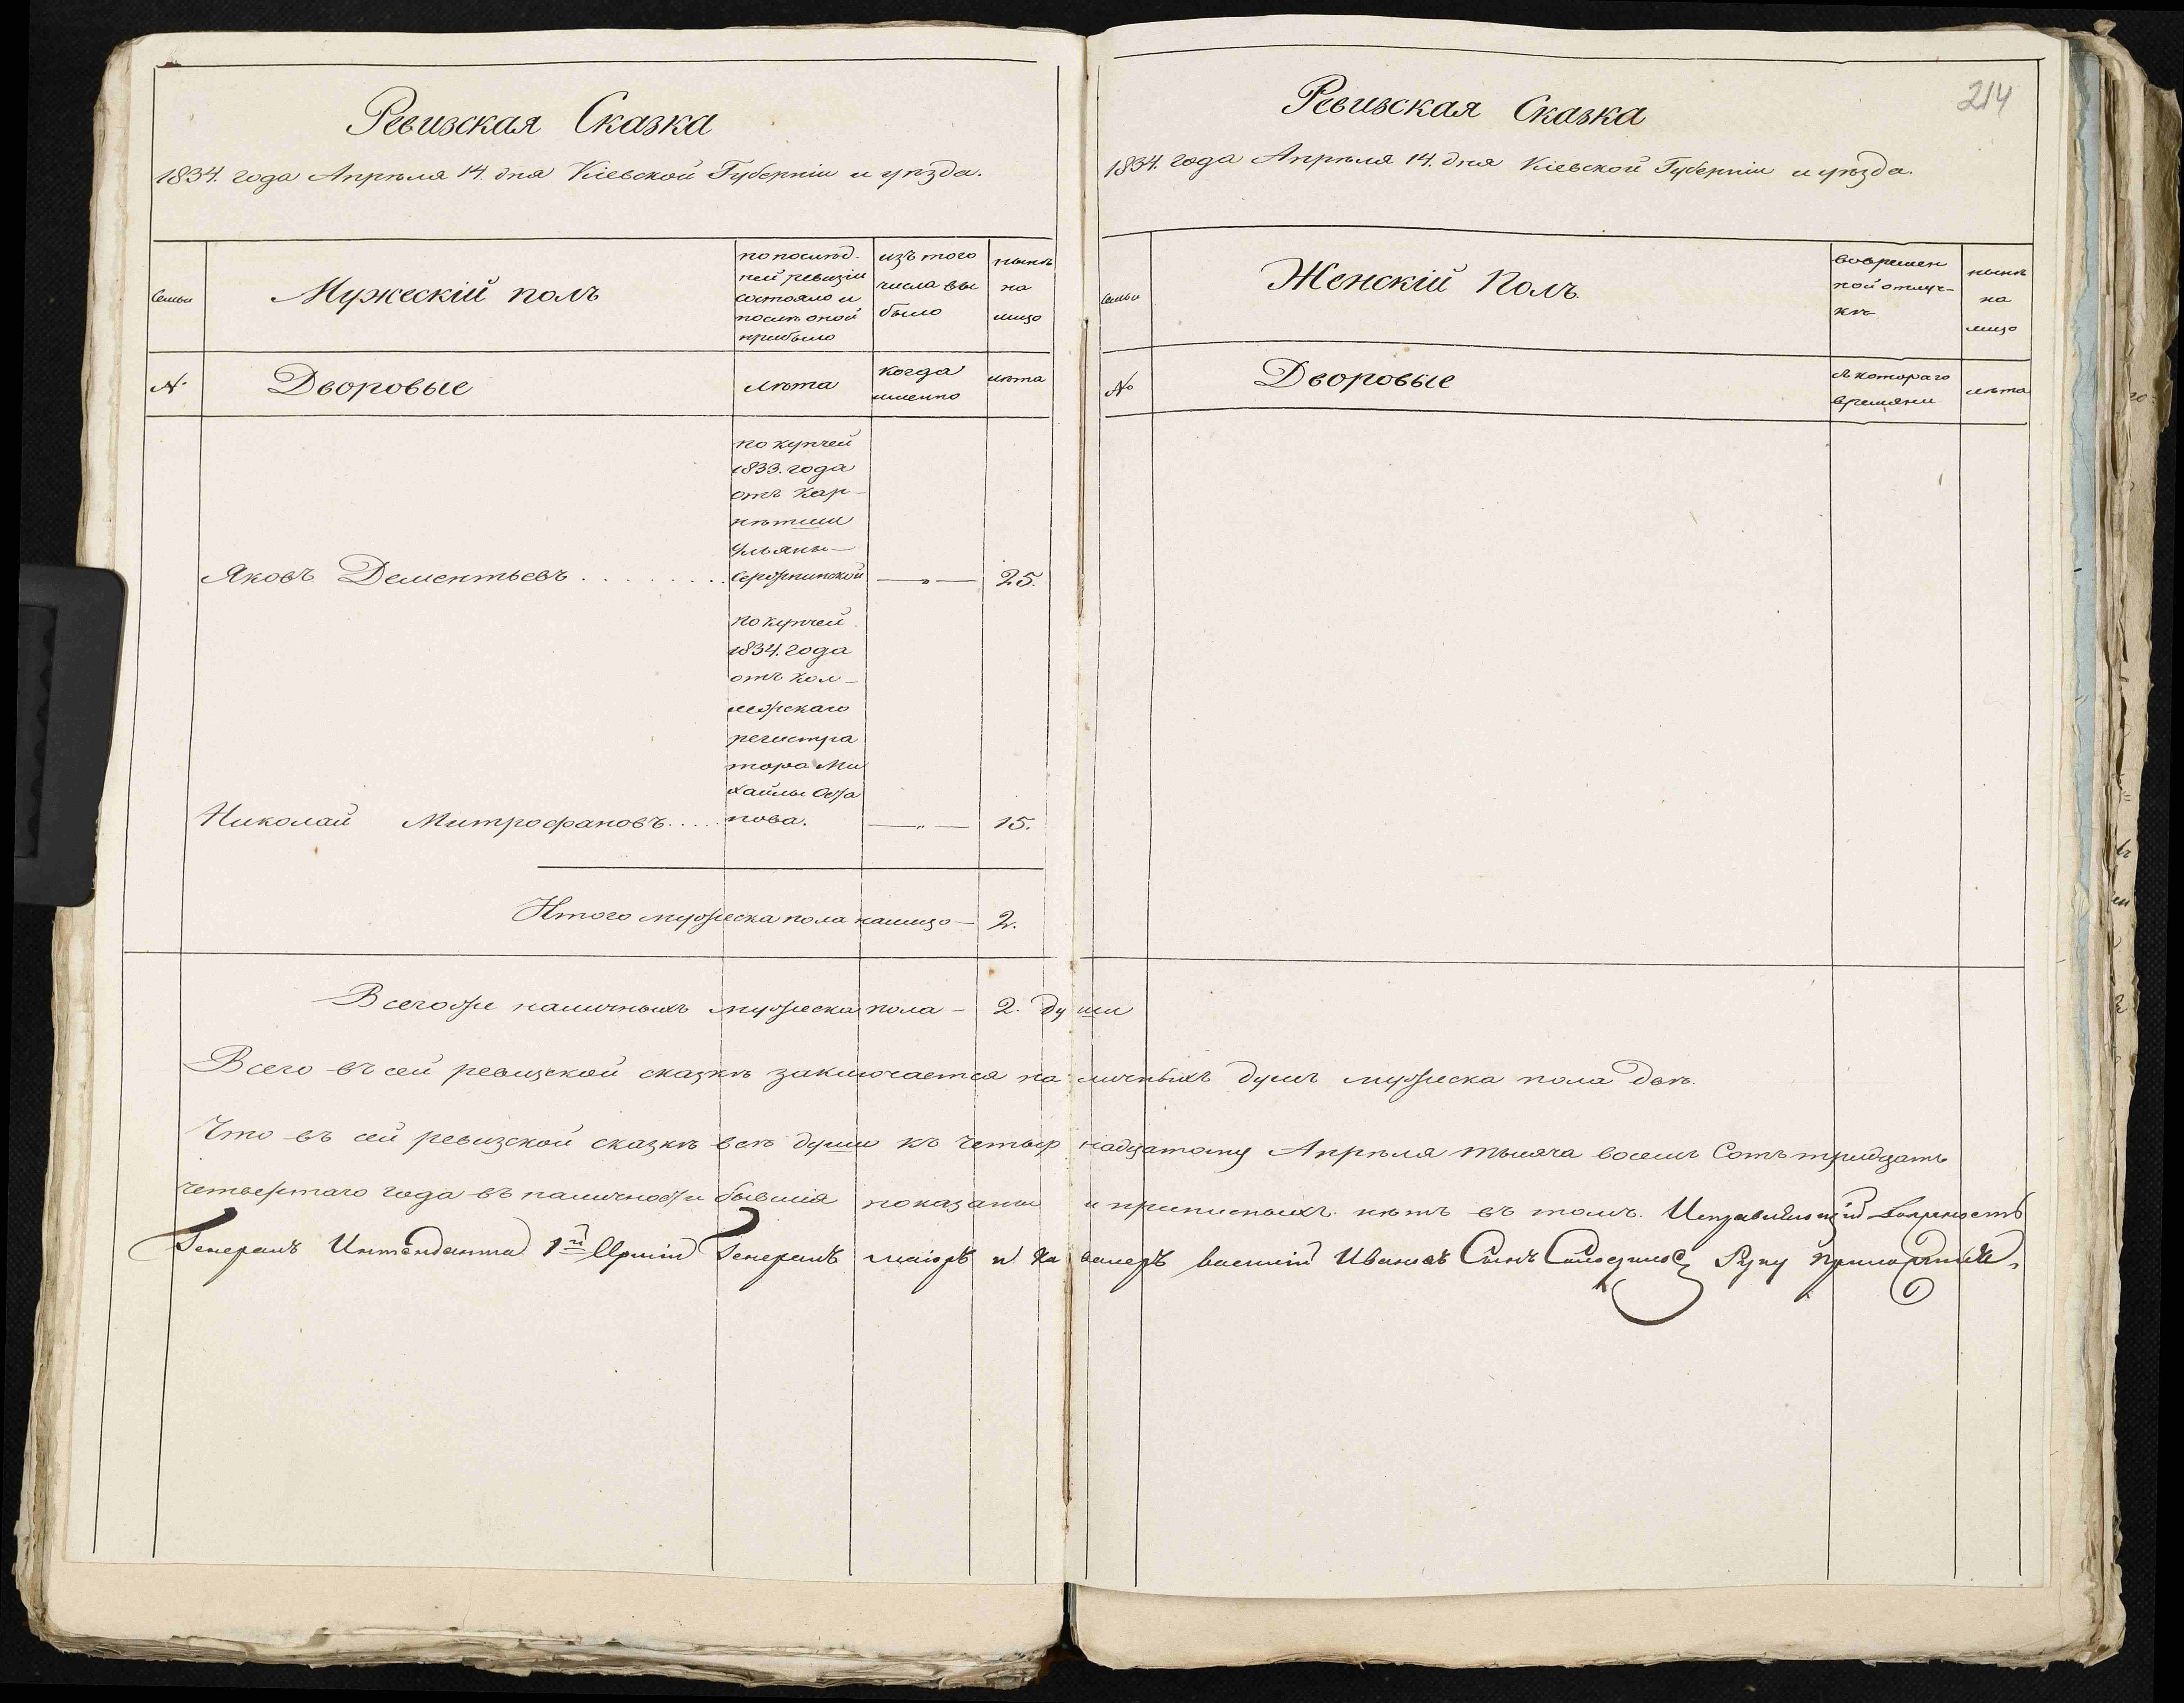 Ревизская Сказка
1834. года Апрѣля 14. дня Кіевской Губерніи и уѣзда.
Семьи
Мужескій полъ
по послѣд-
ней ревизіи
состояло и
послѣ оной
прибыло
изъ того
числа вы
было
нынѣ
на
лицо
№
Дворовые
лѣта
когда
именно
лѣта
по купчей
1833. года
отъ кар-
нѣтши
Ульяны
Яковъ Дементьевъ . . . . . . . — „ — 25.
по купчей
1834. года
отъ кол-
лежскаго
регистра
тора Ми
хайлы Оста
Николай Митрофановъ . . . . нова. — „ — 15.
Итого мужеска пола налицо — 2.
214
Ревизская Сказка
1834. года Апрѣля 14. дня Кіевской Губерніи и уѣзда.
Семьи
Женскій Полъ
во времен
ной отлуч-
кѣ
нынѣ
на
лицо
№
Дворовые
съ котораго
времяни
лѣта
Всегоже наличныхъ мужеска пола — 2. души
Всего въ сей ревизской сказкѣ заключается наличныхъ душъ мужеска пола двѣ.
Что въ сей ревизской сказкѣ всѣ души къ четыр надцатому Апрѣля тысяча восемь Сотъ тридцать
четвертаго года въ наличности бывшія показаны и прописныхъ нѣтъ въ томъ. Исправляющій должность
Генералъ Интенданта 1й Арміи Генералъ маіоръ и Ка валеръ василій Ивановъ Сынъ Руку приложилъ.